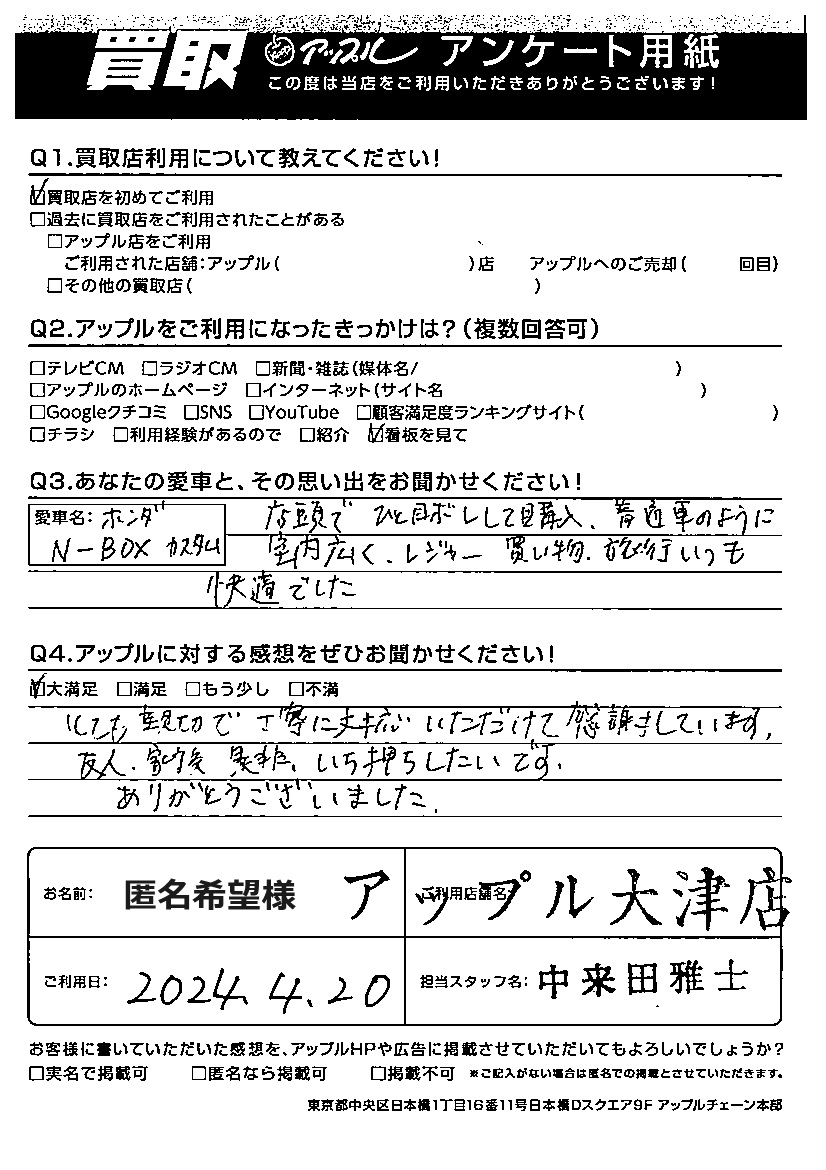 買取 アップル アンケート用紙
この度は当店をご利用いただきありがとうございます!
Q1.買取店利用について教えてください!
☑買取店を初めてご利用
□過去に買取店をご利用されたことがある
□アップル店をご利用
ご利用された店舗:アップル( )店 アップルへのご売却( 回目)
□その他の買取店( )
Q2.アップルをご利用になったきっかけは?(複数回答可)
□テレビCM □ラジオCM □新聞・雑誌(媒体名/ )
□アップルのホームページ □インターネット(サイト名 )
□Googleクチコミ □SNS □YouTube □顧客満足度ランキングサイト( )
□チラシ □利用経験があるので □紹介 ☑看板を見て
Q3.あなたの愛車と、その思い出をお聞かせください!
愛車名:ホンダ 店頭でひと目ボレして購入、普通車のように
N-BOX カスタム 室内広く、レジャー 買い物、旅行いつも
快適でした
Q4.アップルに対する感想をぜひお聞かせください!
☑大満足 □満足 □もう少し □不満
とても親切で丁寧に対応いただけて感謝しています。
友人、家族 是非、いち押ししたいです。
ありがとうございました。
お名前: 匿名希望様 ご利用店舗名: アップル大津店
ご利用日: 2024.4.20 担当スタッフ名: 中来田雅士
お客様に書いていただいた感想を、アップルHPや広告に掲載させていただいてもよろしいでしょうか?
□実名で掲載可 □匿名なら掲載可 □掲載不可 ※ご記入がない場合は匿名での掲載とさせていただきます。
東京都中央区日本橋1丁目16番11号日本橋Dスクエア9F アップルチェーン本部